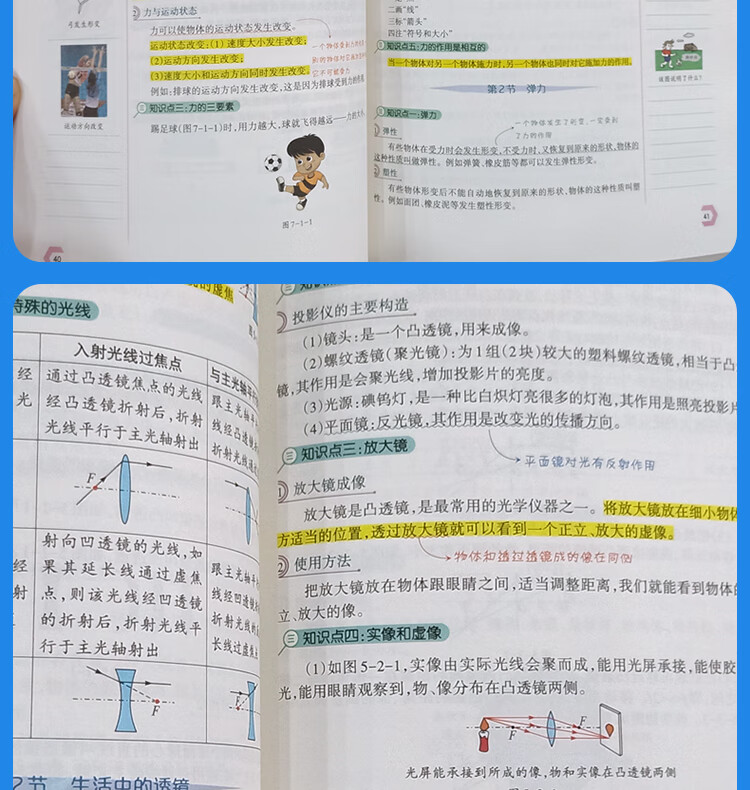 弓发生形变
运动方向改变
40
力与运动状态
力可以使物体的运动状态发生改变。
运动状态改变:(1)速度大小发生改变;
(2)运动方向发生改变;
(3)速度大小和运动方向同时发生改变。
例如:排球的运动方向发生改变,这是因为排球受到力的作用
知识点三:力的三要素
踢足球(图7-1-1)时,用力越大,球就飞得越远
图7-1-1
二画“线”
三标“箭头”
四注“符号和大小”
知识点五:力的作用是相互的
当一个物体对另一个物体施力时,另一个物体也同时对它施加力的作用。
第2节 弹力
知识点一:弹力
1 弹性
一个物体发生了形变,一定受到
了力的作用
有些物体在受力时会发生形变,不受力时,又恢复到原来的形状,物体的
这种性质叫做弹性。例如弹簧、橡皮筋等都可以发生弹性形变。
2 塑性
有些物体形变后不能自动地恢复到原来的形状,物体的这种性质叫塑
性。例如面团、橡皮泥等发生塑性形变。
该图说明了什么?
41
特殊的光线
入射光线过焦点
与主光轴平
经
光
通过凸透镜焦点的光线
经凸透镜折射后,折射
光线平行于主光轴射出
跟主光轴平
线经凸透镜
折射光线通
F
经
射
射向凹透镜的光线,如
果其延长线通过虚焦
点,则该光线经凹透镜
的折射后,折射光线平
行于主光轴射出
跟主光轴平
线经凹透镜
折射光线
长线过虚焦
F
F
2节 生活中的透镜
投影仪的主要构造
(1)镜头:是一个凸透镜,用来成像。
(2)螺纹透镜(聚光镜):为1组(2块)较大的塑料螺纹透镜,相当于凸
镜,其作用是会聚光线,增加投影片的亮度。
(3)光源:碘钨灯,是一种比白炽灯亮很多的灯泡,其作用是照亮投影片
(4)平面镜:反光镜,其作用是改变光的传播方向。
平面镜对光有反射作用
三 知识点三:放大镜
1 放大镜成像
放大镜是凸透镜,是最常用的光学仪器之一。将放大镜放在细小物体
方适当的位置,透过放大镜就可以看到一个正立、放大的虚像。
物体和透过透镜成的像在同侧
2 使用方法
把放大镜放在物体跟眼睛之间,适当调整距离,我们就能看到物体的
立、放大的像。
三 知识点四:实像和虚像
(1)如图5-2-1,实像由实际光线会聚而成,能用光屏承接,能使胶
光,能用眼睛观察到,物、像分布在凸透镜两侧。
F F
光屏能承接到所成的像,物和实像在凸透镜两侧